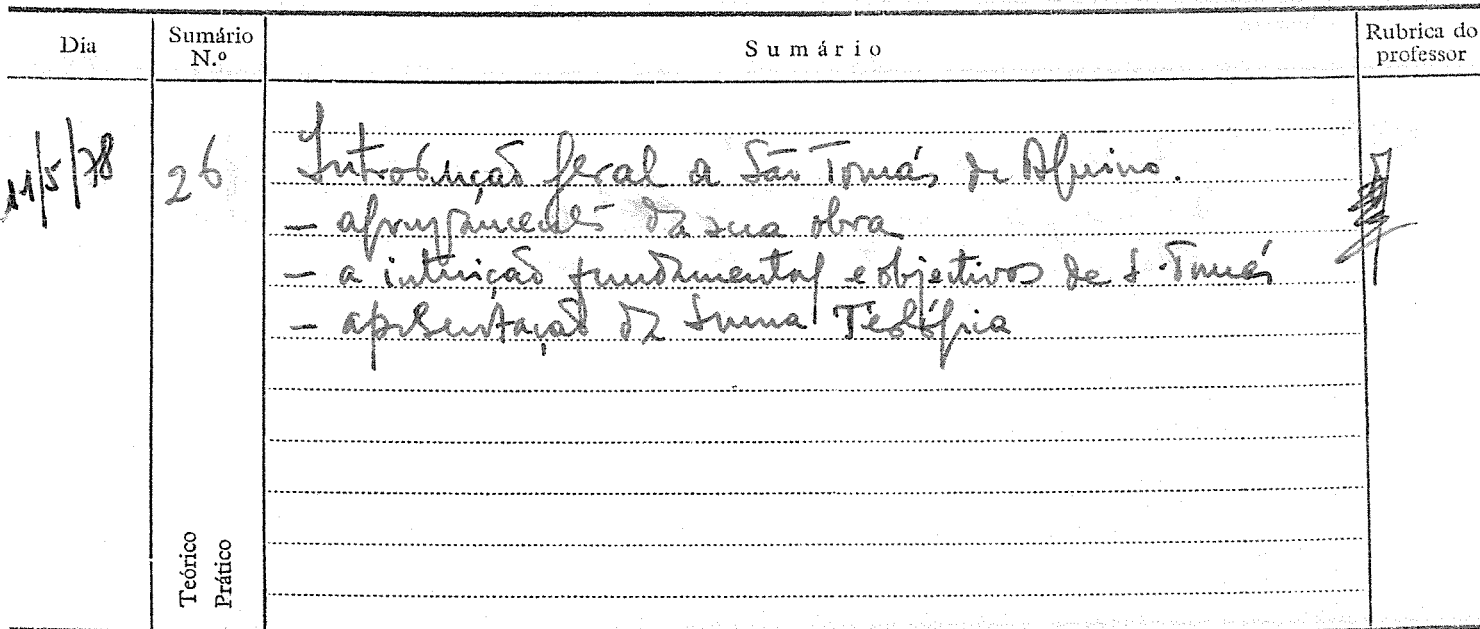 Dia
Sumário N.º
Sumário
Rubrica do professor
11/5/78
26
Introdução geral a São Tomás de Aquino.
- agrupamento da sua obra
- a intuição fundamental e objectivos de S. Tomás
- apresentação da Suma Teológica
Teórico
Prático